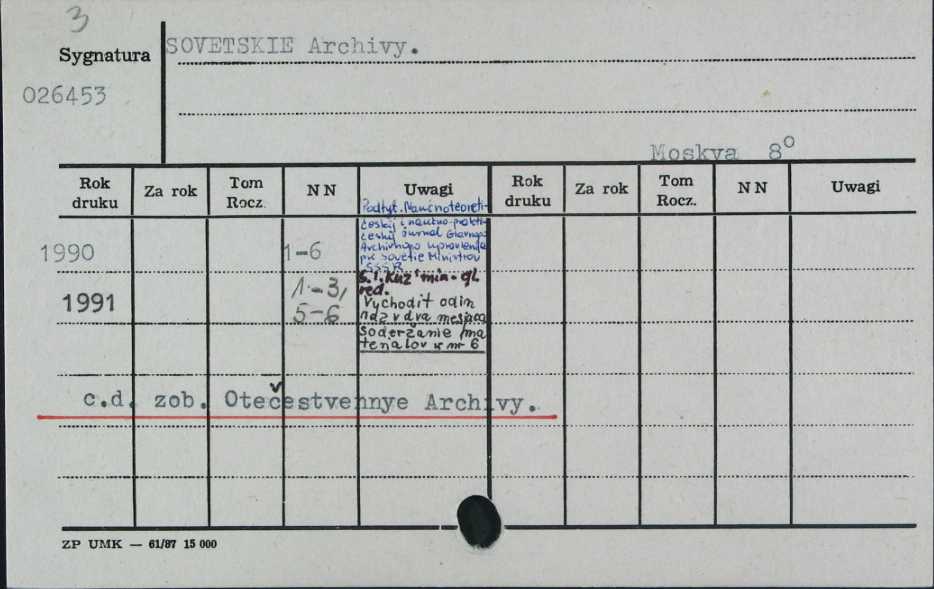 3
Sygnatura
SOVETSKIE Archivy.
026453
Moskva 8°
Rok druku Za rok Tom Rocz. N N Uwagi Rok druku Za rok Tom Rocz. N N Uwagi
Podtyt. Naučnoteoreti-
českij i naučno-prakti-
českij žurnal Glavnogo
Archivnogo upravlenija
pri Sovetie Ministrov
SSSR
1990 1-6
S.I. Kuz'min - gl.
red.
1991 1-3,
5-6
Vychodit odin
raz v dva mesjaca
soderžanie ma
terialov v nr 6
c.d. zob. Otečestvennye Archivy.
ZP UMK — 61/87 15 000